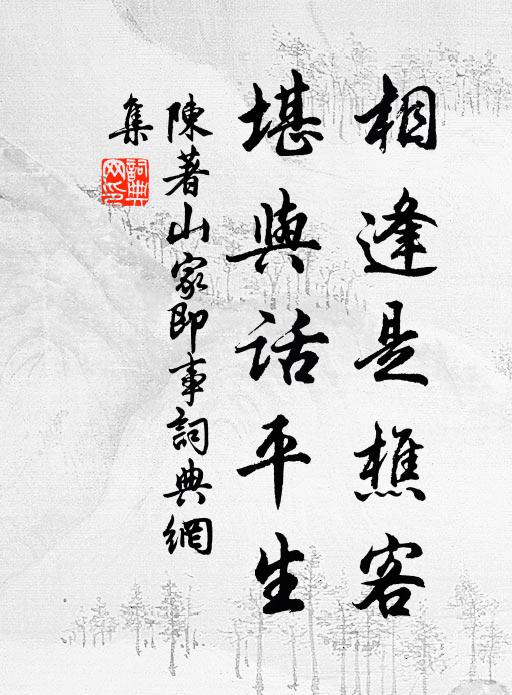 相逢是樵客
堪與話平生
陳著山家即事詞典網
集
詞典
網印